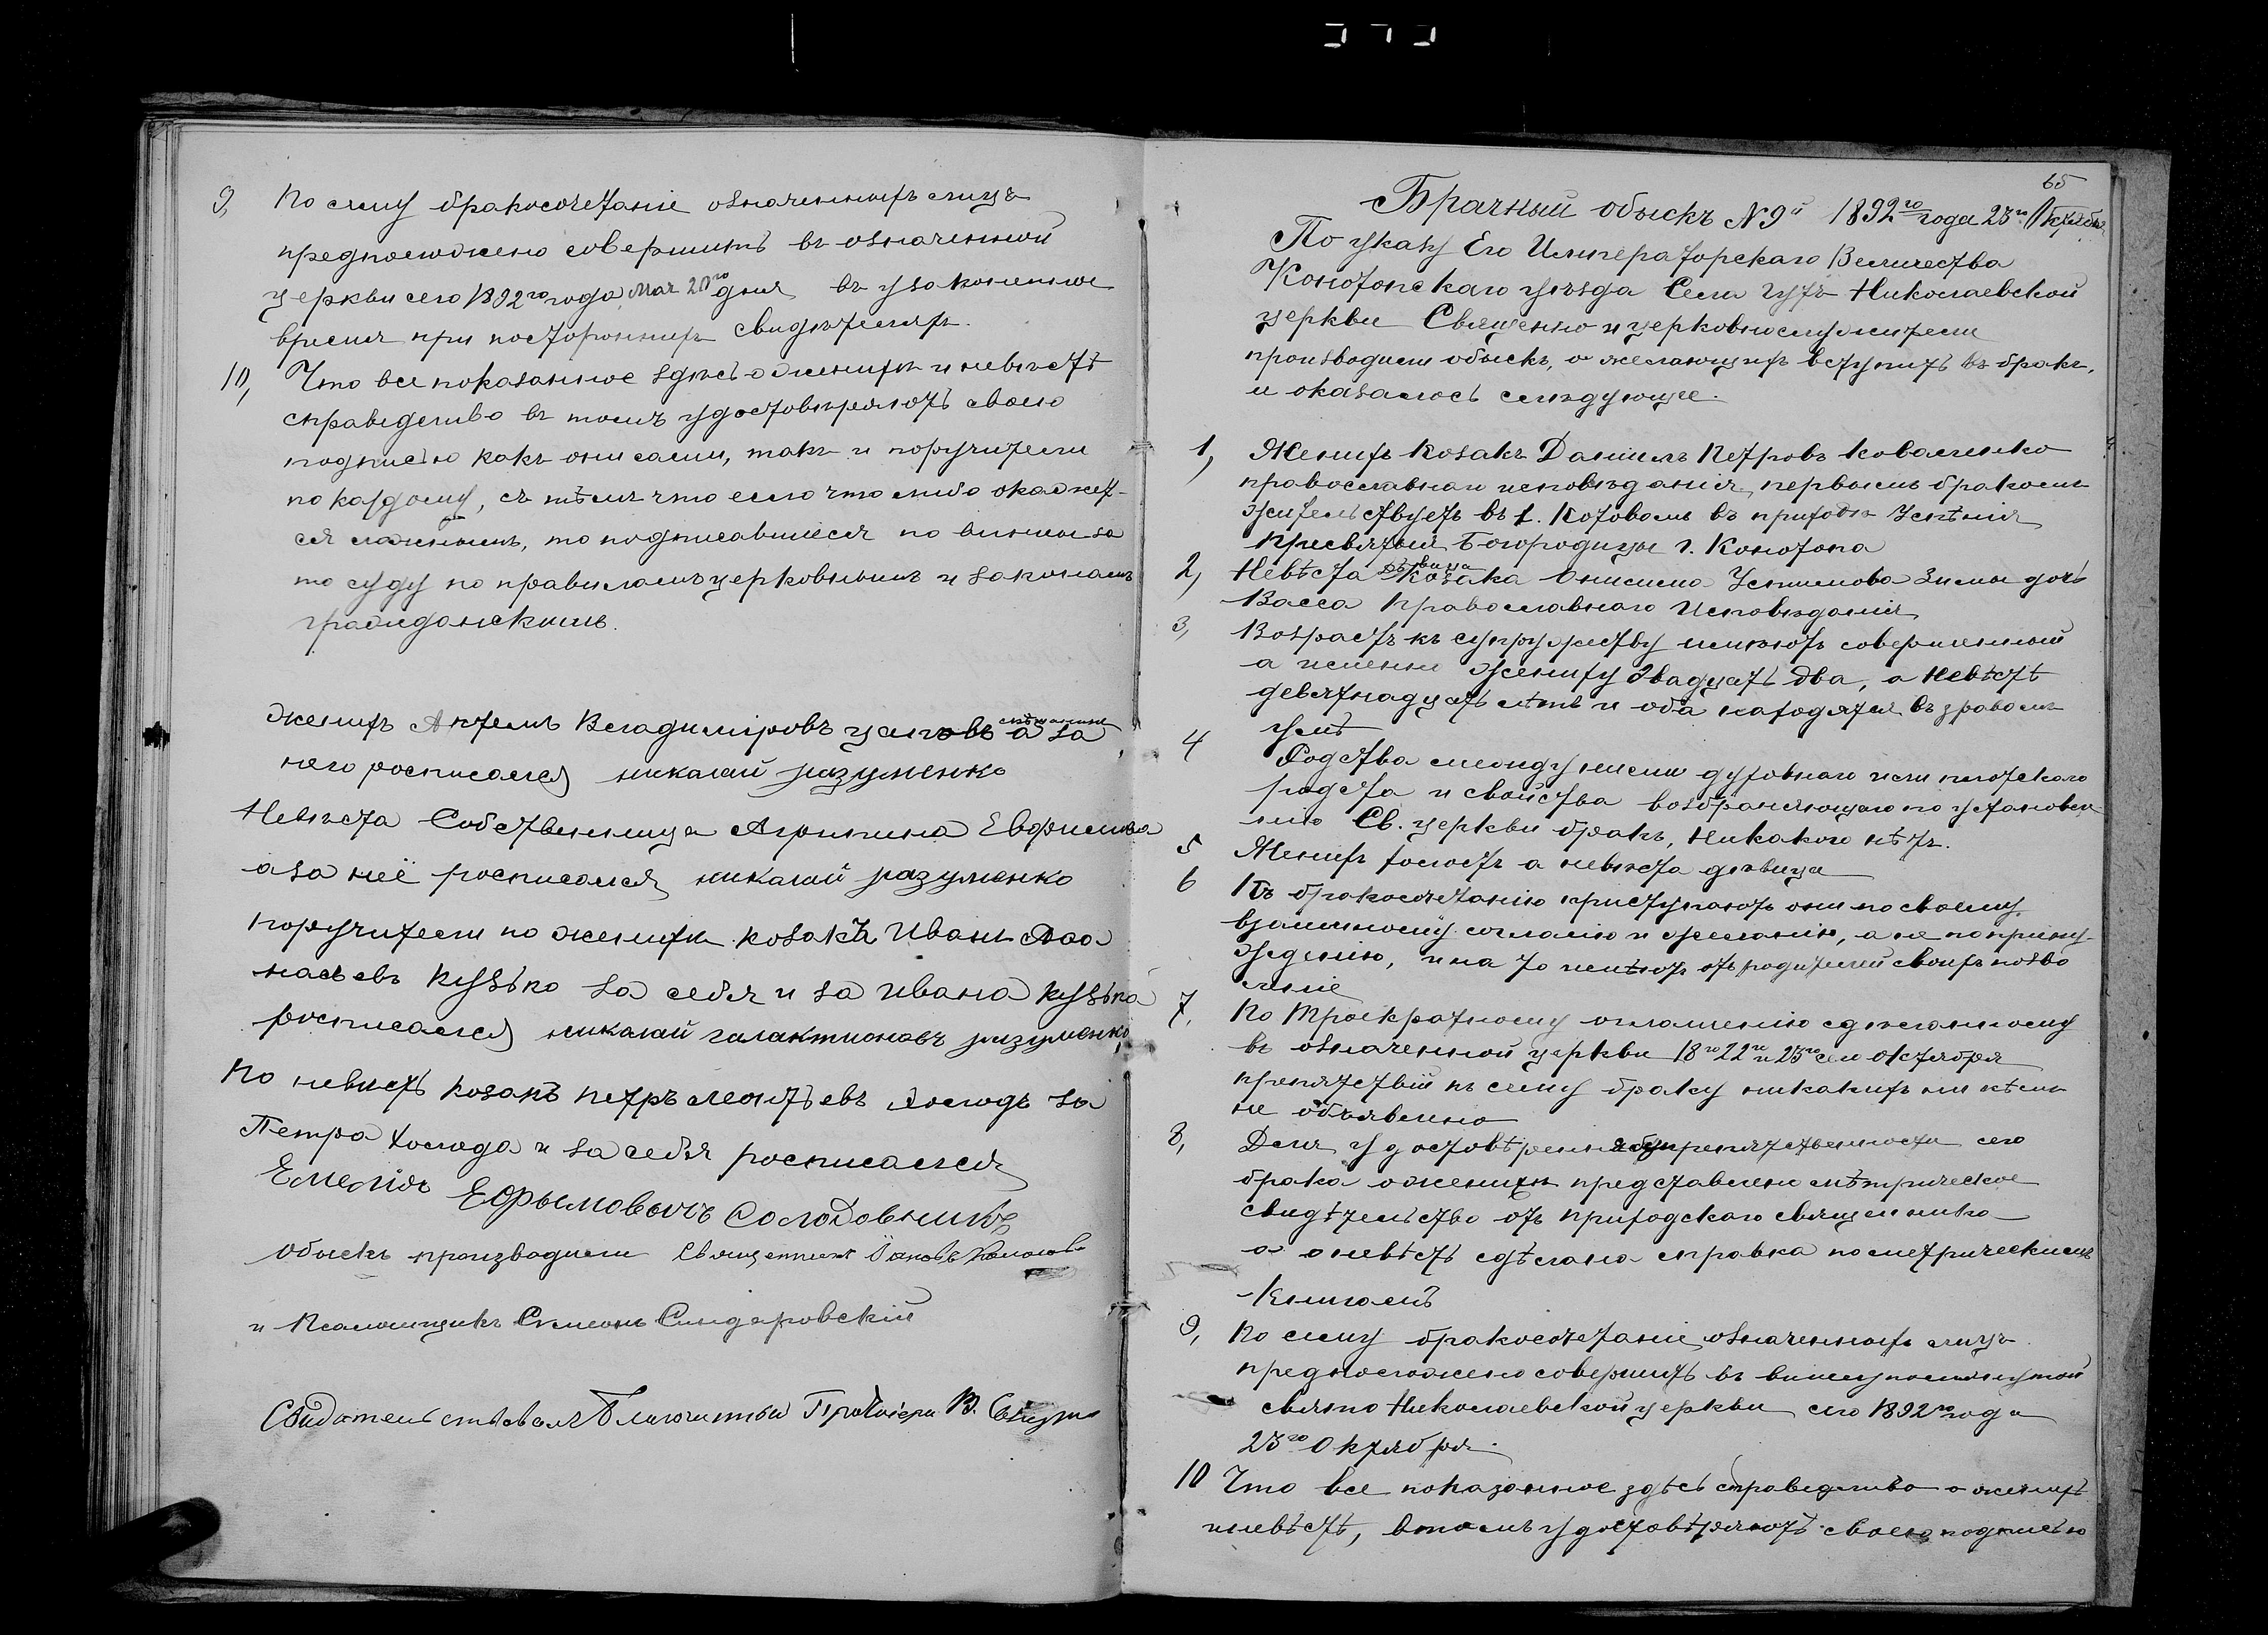 9, По сему бракосочетаніе означенныхъ лицъ
предположено совершить въ означенной
церкви сего 1892го года Мая 20го дня въ узаконенное
время при постороннихъ свидѣтеляхъ.
10, Что все показанное здѣсь о женихѣ и невѣстѣ
справедливо въ томъ удостовѣряютъ своею
подписью какъ они сами, такъ и поручители
по каждому, съ тѣмъ что если что либо окажет-
ся ложнымъ, то подписавшіеся повинны за
то суду по правиламъ церковнымъ и законамъ
гражданскимъ.
женихъ Владиміровъ а за
него росписался никалай разуменко
Невѣста Собственница Агрипина Евфимова
а за неё росписался никалай разуменко
поручители по женихѣ козакъ Иванъ Афа
насьевъ Кузько за себя и за Ивана Кузька
росписался никалай галактионовъ разуменко
По невѣстѣ козакъ петръ холодъ за
Петра холода и за себя росписался
Емеліянъ Ефрымовычъ Солодовникъ
обыскъ производили Священникъ
и Псаломщикъ Симеонъ
Благочинный Протоіерей В.
65
Брачный обыскъ №9й 1892го года 23го Октября
По указу Его Императорскаго Величества
Конотопскаго уѣзда Села Гутъ Николаевской
церкви Священно и церковнослужители
производили обыскъ, о желающихъ вступить въ бракъ,
и оказалось слѣдующее.
1, Женихъ Козакъ Даніилъ Петровъ Коваленко
православнаго исповѣданія, первымъ бракомъ
жительствуетъ въ Котовомъ въ приходѣ Успѣнія
Пресвятыя Богородицы г. Конотопа
2, Невѣста дѣвица Козака Онисима Устимова Зимы дочь
Васса Православнаго Исповѣданія
3, Возрастъ къ супружеству имѣютъ совершенный
а именно Жениху двадцать два, а Невѣстѣ
девятнадцать лѣтъ и оба находятся въ здравомъ
умѣ
4 Родства между ними духовнаго или плотскаго
родства и свойства возбраняющаго по установле-
нію Св. церкви бракъ, никакого нѣтъ.
5 Женихъ холостъ а невѣста дѣвица
6 Къ бракосочетанію приступаютъ они по своему
взаимному согласію и желанію, а не по прину-
жденію, и на то имѣютъ отъ родителей своихъ позво
леніе
7, По Троекратному оглашенію сдѣланному
въ означенной церкви 18го 22го и 23го сего Октября
препятствій къ сему браку никакихъ ни кѣмъ
не объявлено
8, Для удостовѣренія безпрепятственности сего
брака о женихѣ представлено мѣтрическое
свидѣтельство отъ приходскаго священника
а о невѣстѣ сдѣлана справка по метрическимъ
Книгамъ
9, По сему бракосочетаніе означенныхъ лицъ
предположено совершить въ вишеупомянутой
свято Николаевской церкви сего 1892го года
23го Октября.
10 Что все показанное здѣсь справедливо о женихѣ
и невѣстѣ, втомъ удостовѣряютъ своею подписью